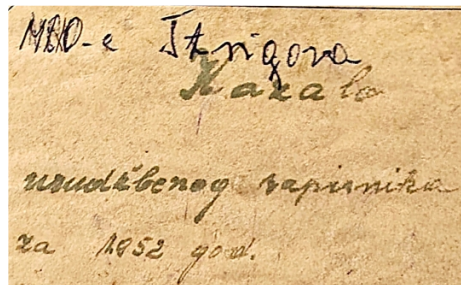 MNO-e Štrigova
Kazalo
urudžbenog zapisnika
za 1952 god.